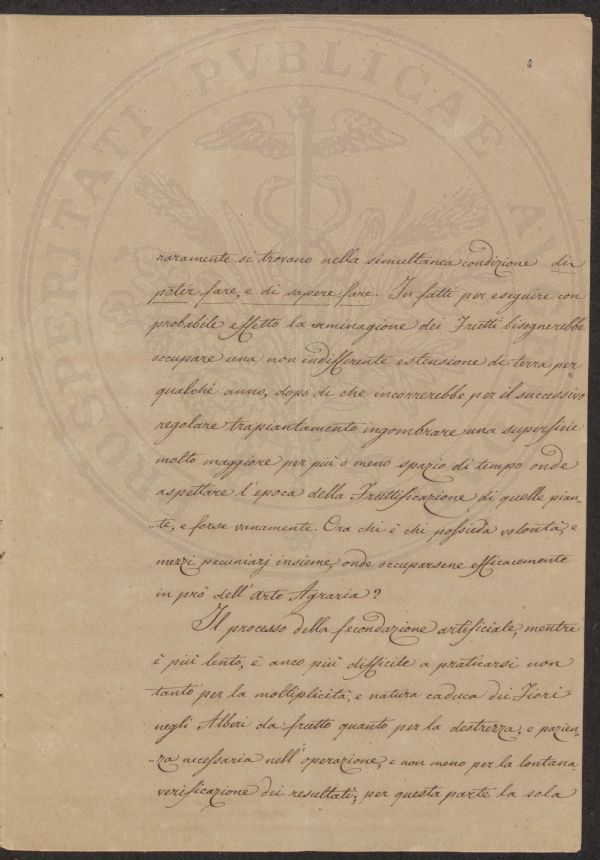 PROSPERITATI PVBLICAE AV
raramente si trovano nella simultanea condizione di
poter fare, e di sapere fare. In fatti per eseguire con
probabile effetto la seminagione dei Frutti bisognerebbe
occupare una non indifferente estensione di terra per
qualche anno, dopo di che incorrerebbe per il successivo
regolare trapiantamento ingombrare una superficie
molto maggiore per più o meno spazio di tempo onde
aspettare l'epoca della Fruttificazione di quelle pian-
-te, e forse vanamente. Ora chi è chi possieda volontà, e
mezzi pecuniarj insieme, onde occuparsene efficacemente
in prò dell'Arte Agraria?
Il processo della fecondazione artificiale, mentre
è più lento, è anco più difficile a praticarsi non
tanto per la moltiplicità, e natura caduca dei Fiori
negli Alberi da frutto quanto per la destrezza, e pazien-
-za necessaria nell'operazione, e non meno per la lontana
verificazione dei resultati; per questa parte la sola